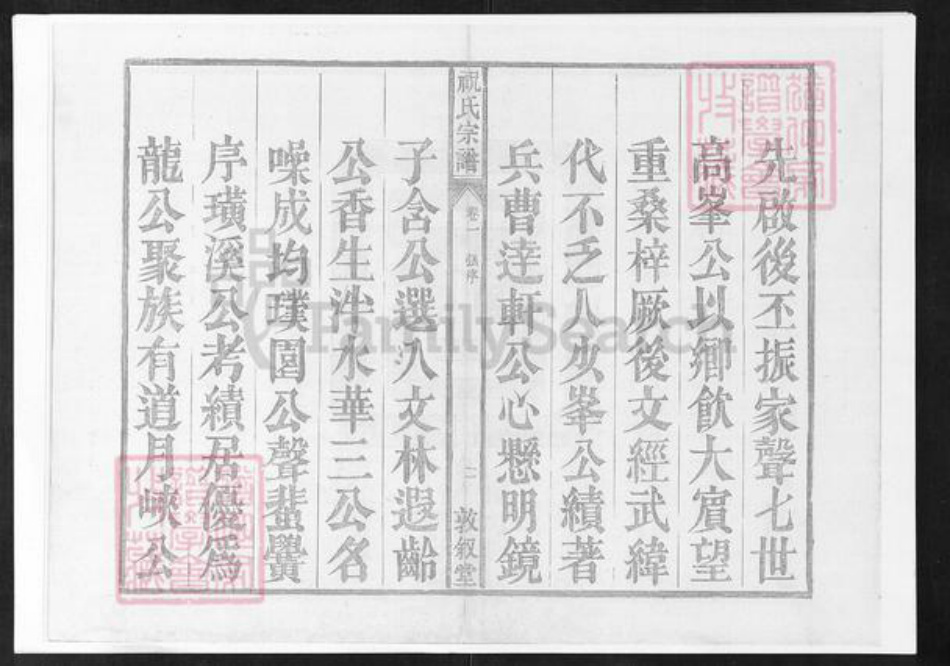 先啟後丕振家聲七世
高峯公以鄉飲大賓望
重桑梓厥後文經武緯
代不乏人少峯公績著
兵曹達軒公心懸明鏡
祝氏宗譜
卷一
序
二
敦叙堂
子含公選入文林遐齡
公香生泮水華三公名
噪成均璞園公聲蜚黌
序璜溪公考績居優爲
龍公聚族有道月峽公
FamilySearch